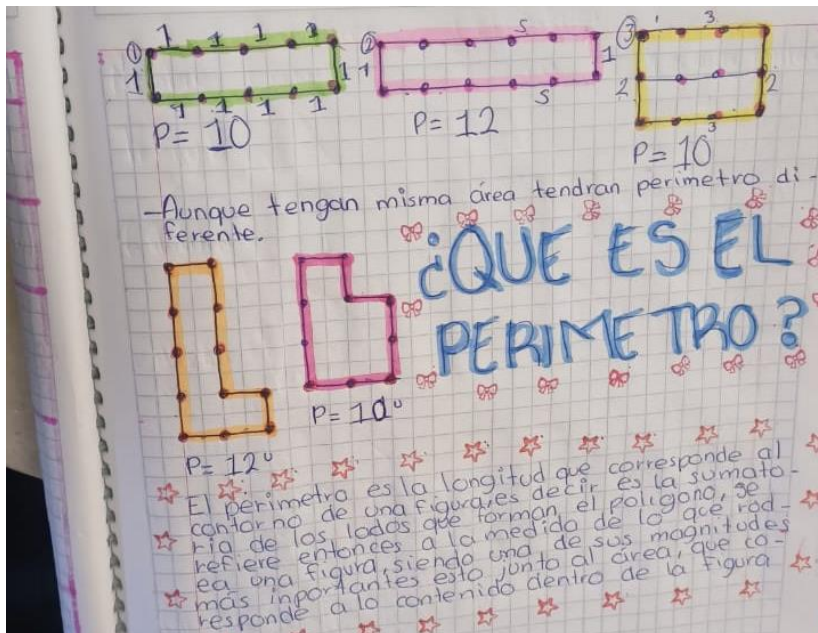 ① 1 1 1 1
1 1
1 1 1 1
P= 10
② 5
1 1
5
P= 12
③ 1 3
2 2
3
P= 10
-Aunque tengan misma área tendran perimetro di-
ferente.
¿QUE ES EL
PERIMETRO?
P= 12u
P= 10u
El perimetro es la longitud que corresponde al
contorno de una figura, es decir es la sumato-
ria de los lados que forman el poligono, se
refiere entonces a la medida de lo que rod-
ea una figura, siendo una de sus magnitudes
más inportantes esto junto al área, que co-
responde a lo contenido dentro de la figura